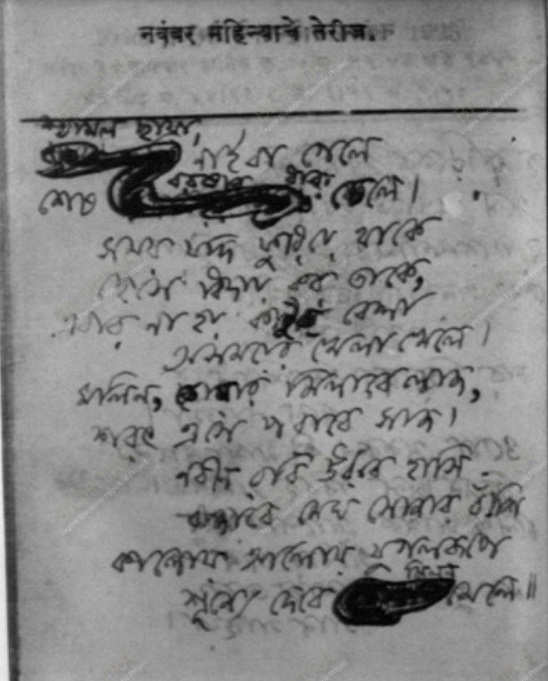 नवंबर महिन्याचे तेरीज.
শ্যামল ছায়া,
নাইবা গেলে
শেষ বরষার ধারা ঢেলে।
সময় যদি ফুরিয়ে থাকে
হেসে বিদায় কর তাকে,
এবার না হয় কাটুক বেলা
অসময়ের খেলা খেলে।
মলিন, তোমার মিলাবে লাজ,
শরৎ এসে পরাবে সাজ।
নবীন রবি উঠবে হাসি
বাজাবে মেঘ সোনার বাঁশি
কালোয় আলোয় যুগলরূপে
শূন্যে দেবে মিলন মেলে॥